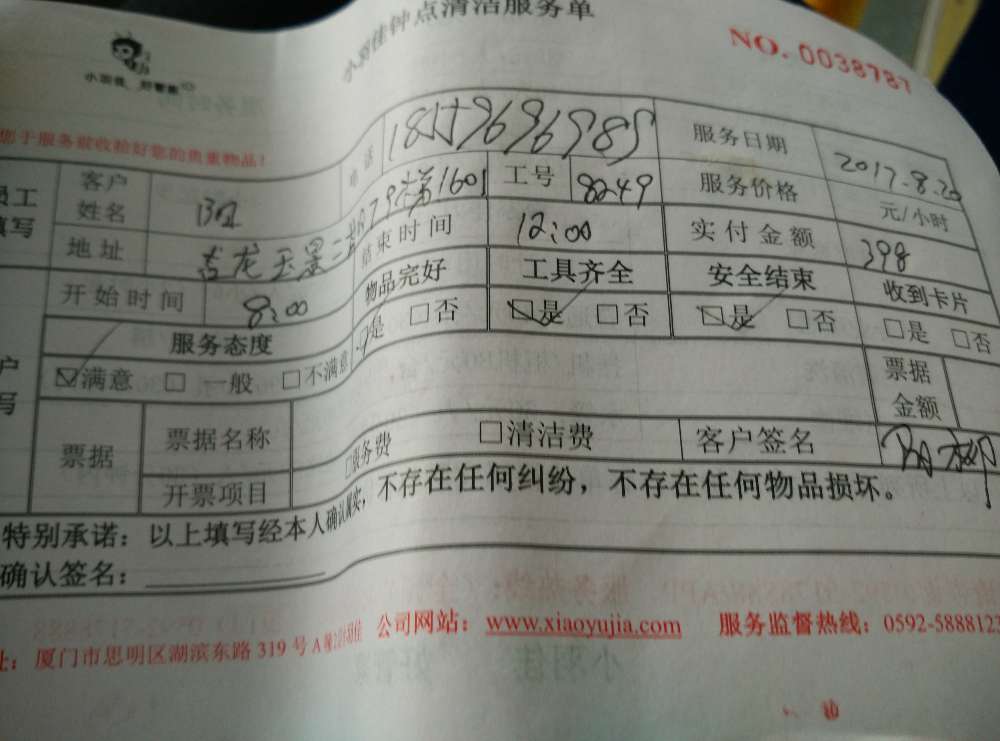 小羽佳钟点清洁服务单
NO. 0038787
小羽佳 好管家
您于服务前收拾好您的贵重物品!
员工填写 客户姓名 电话 服务日期 2017.8.20
地址 吉龙 1601 工号 8249 服务价格 元/小时
开始时间 8:00 结束时间 12:00 实付金额 398
服务态度 物品完好 工具齐全 安全结束 收到卡片
☑满意 □一般 □不满意 □是 □否 ☑是 □否 ☑是 □否 □是 □否
票据 票据名称 票据金额
开票项目 □服务费 □清洁费 客户签名
特别承诺:以上填写经本人确认属实,不存在任何纠纷,不存在任何物品损坏。
确认签名:
址:厦门市思明区湖滨东路319号A 公司网站:www.xiaoyujia.com 服务监督热线:0592-5888123